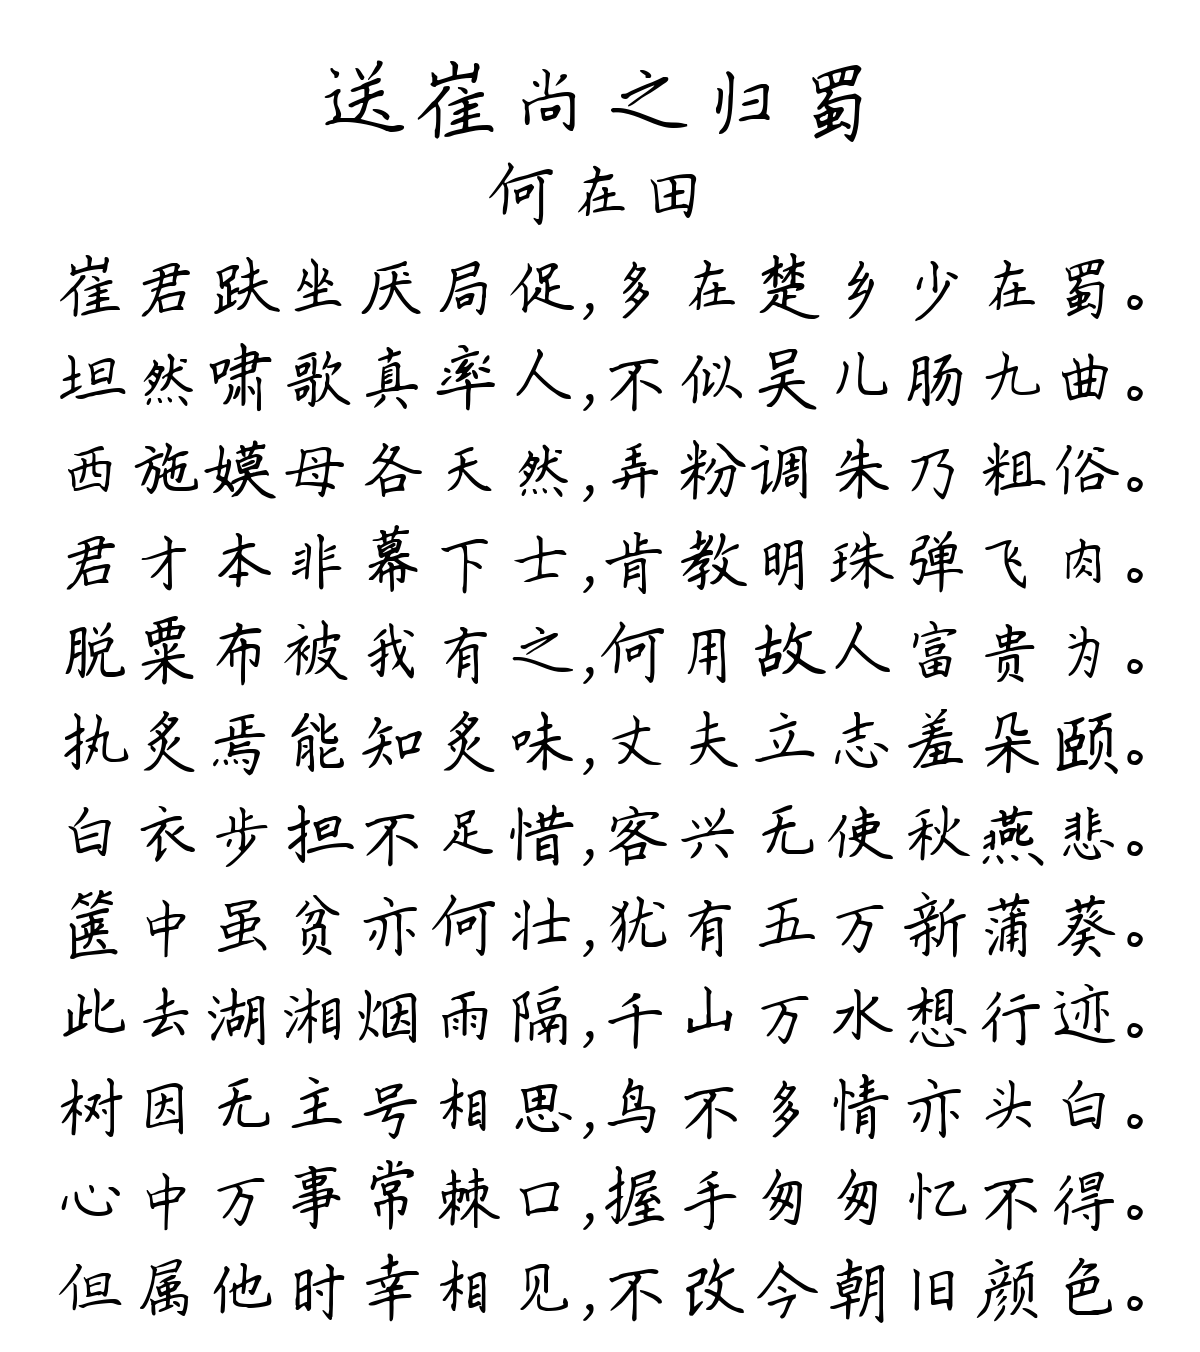 送崔尚之归蜀
何在田
崔君趺坐厌局促,多在楚乡少在蜀。
坦然啸歌真率人,不似吴儿肠九曲。
西施嫫母各天然,弄粉调朱乃粗俗。
君才本非幕下士,肯教明珠弹飞肉。
脱粟布被我有之,何用故人富贵为。
执炙焉能知炙味,丈夫立志羞朵颐。
白衣步担不足惜,客兴无使秋燕悲。
箧中虽贫亦何壮,犹有五万新蒲葵。
此去湖湘烟雨隔,千山万水想行迹。
树因无主号相思,鸟不多情亦头白。
心中万事常棘口,握手匆匆忆不得。
但属他时幸相见,不改今朝旧颜色。